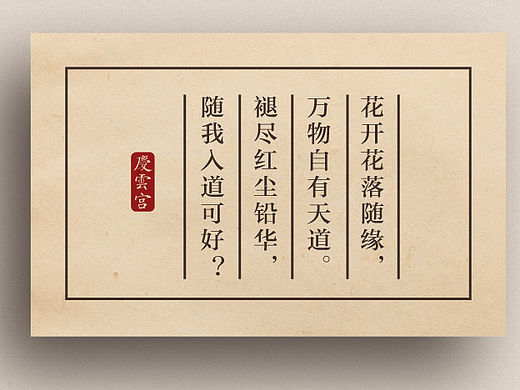 花开花落随缘，
万物自有天道。
褪尽红尘铅华，
随我入道可好？
慶雲宫